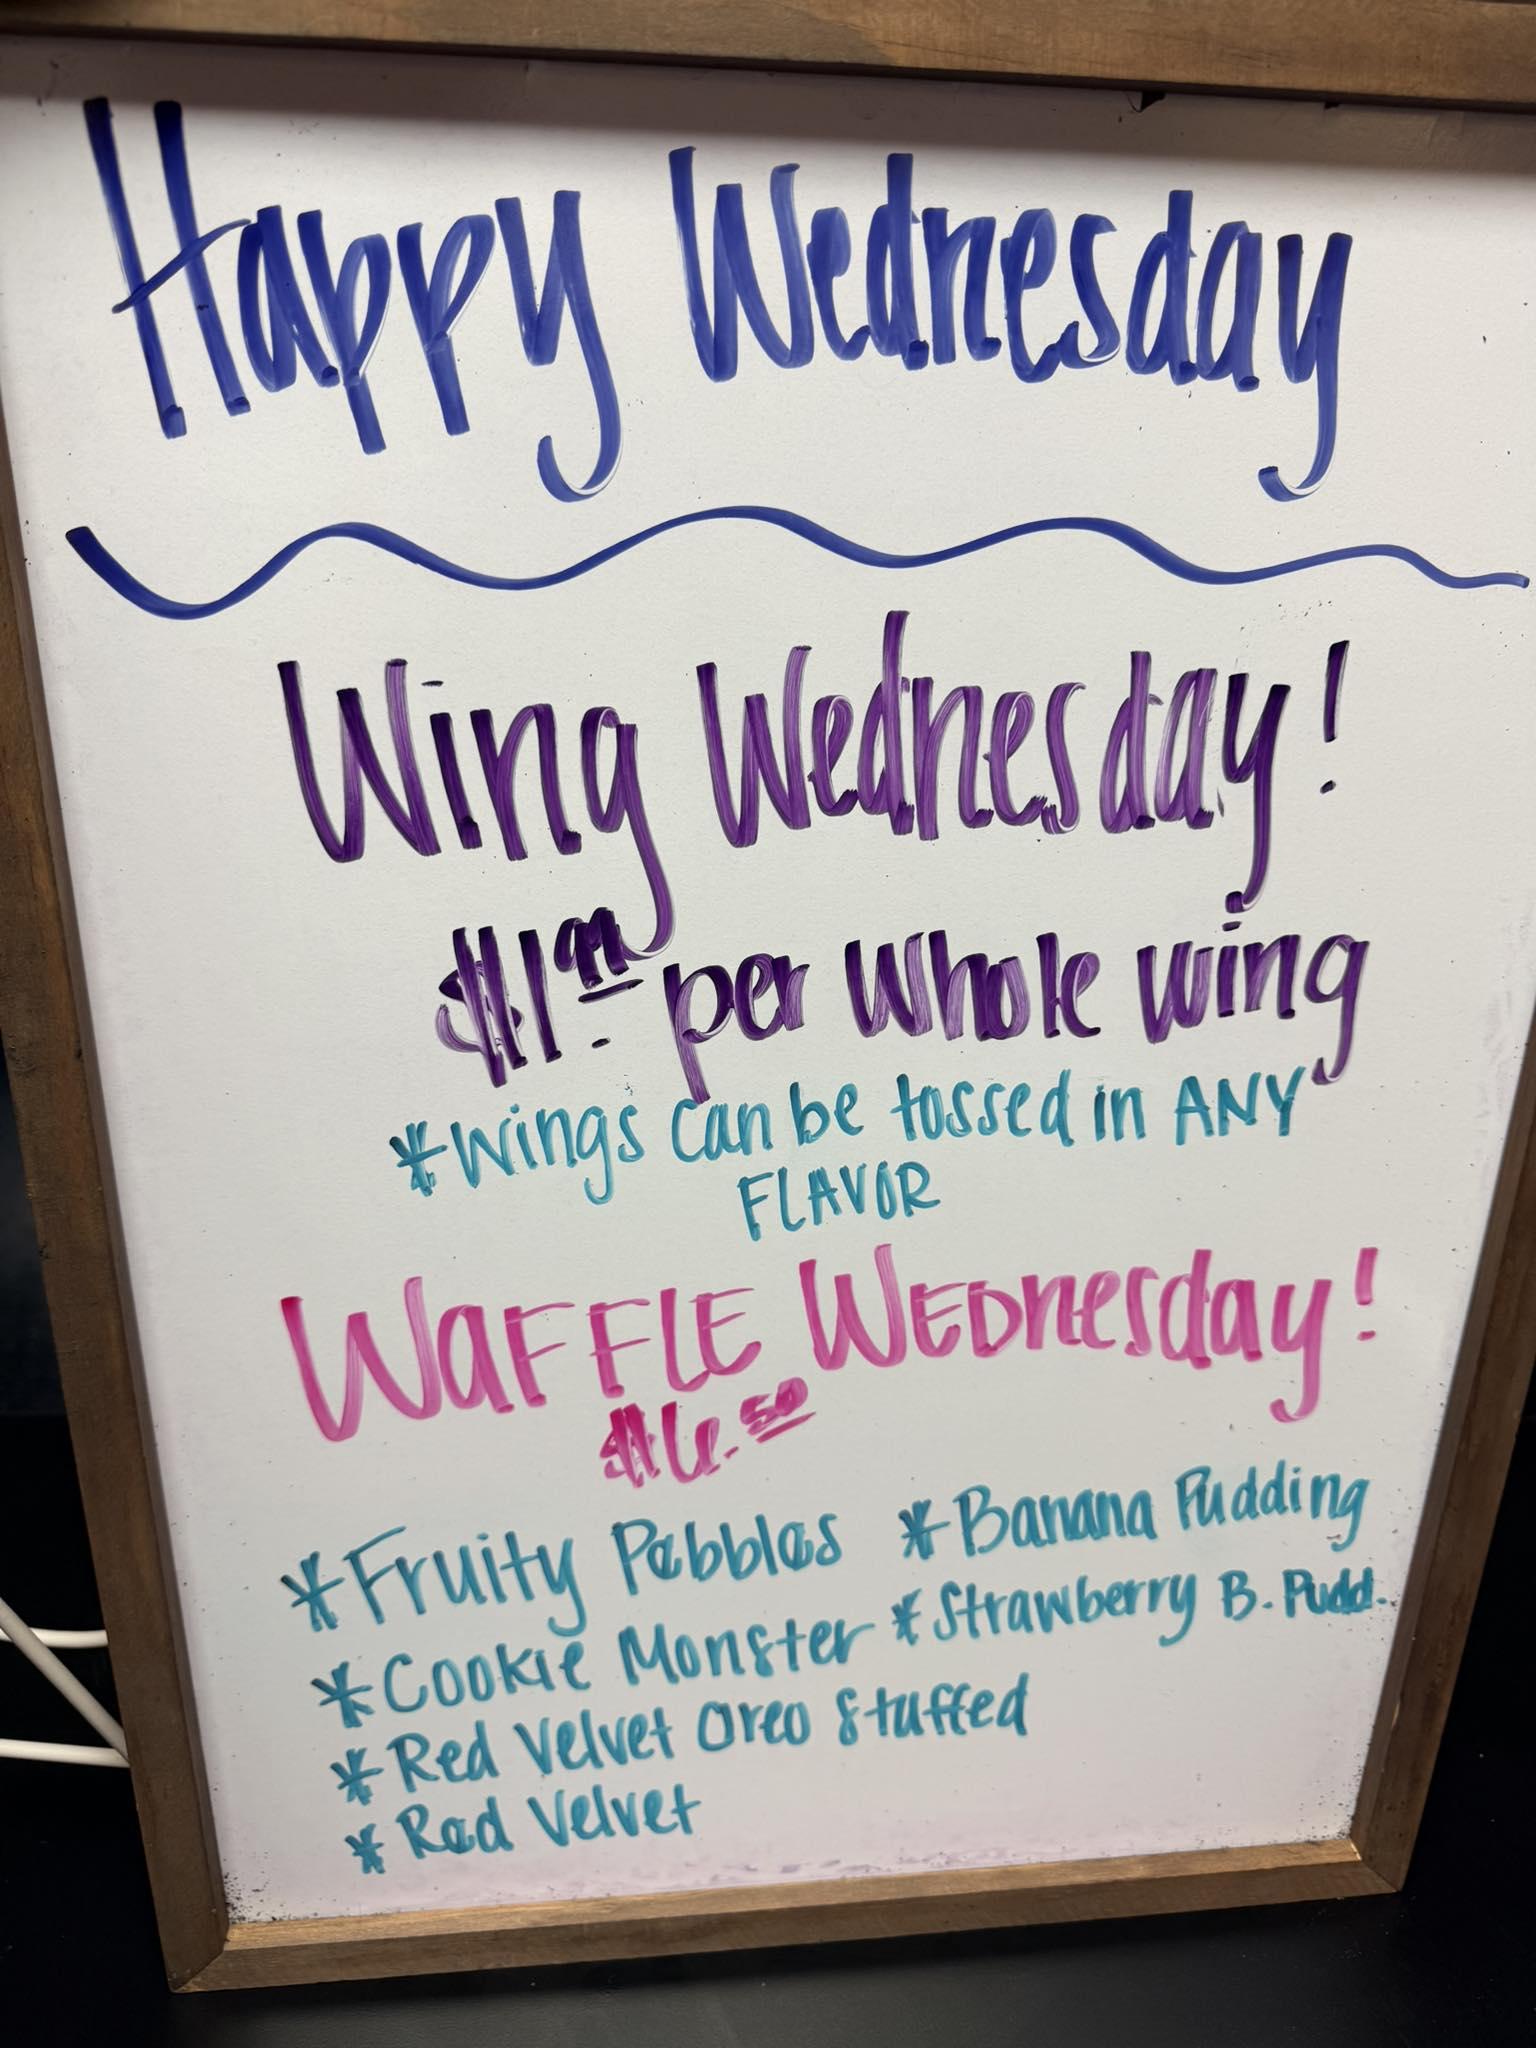 Happy Wednesday
Wing Wednesday!
$1.99 per whole wing
*Wings can be tossed in ANY
FLAVOR
WAFFLE WEDnesday!
$6.50
*Fruity Pebbles *Banana Pudding
*Cookie Monster *Strawberry B. Pudd.
*Red Velvet Oreo Stuffed
*Red Velvet